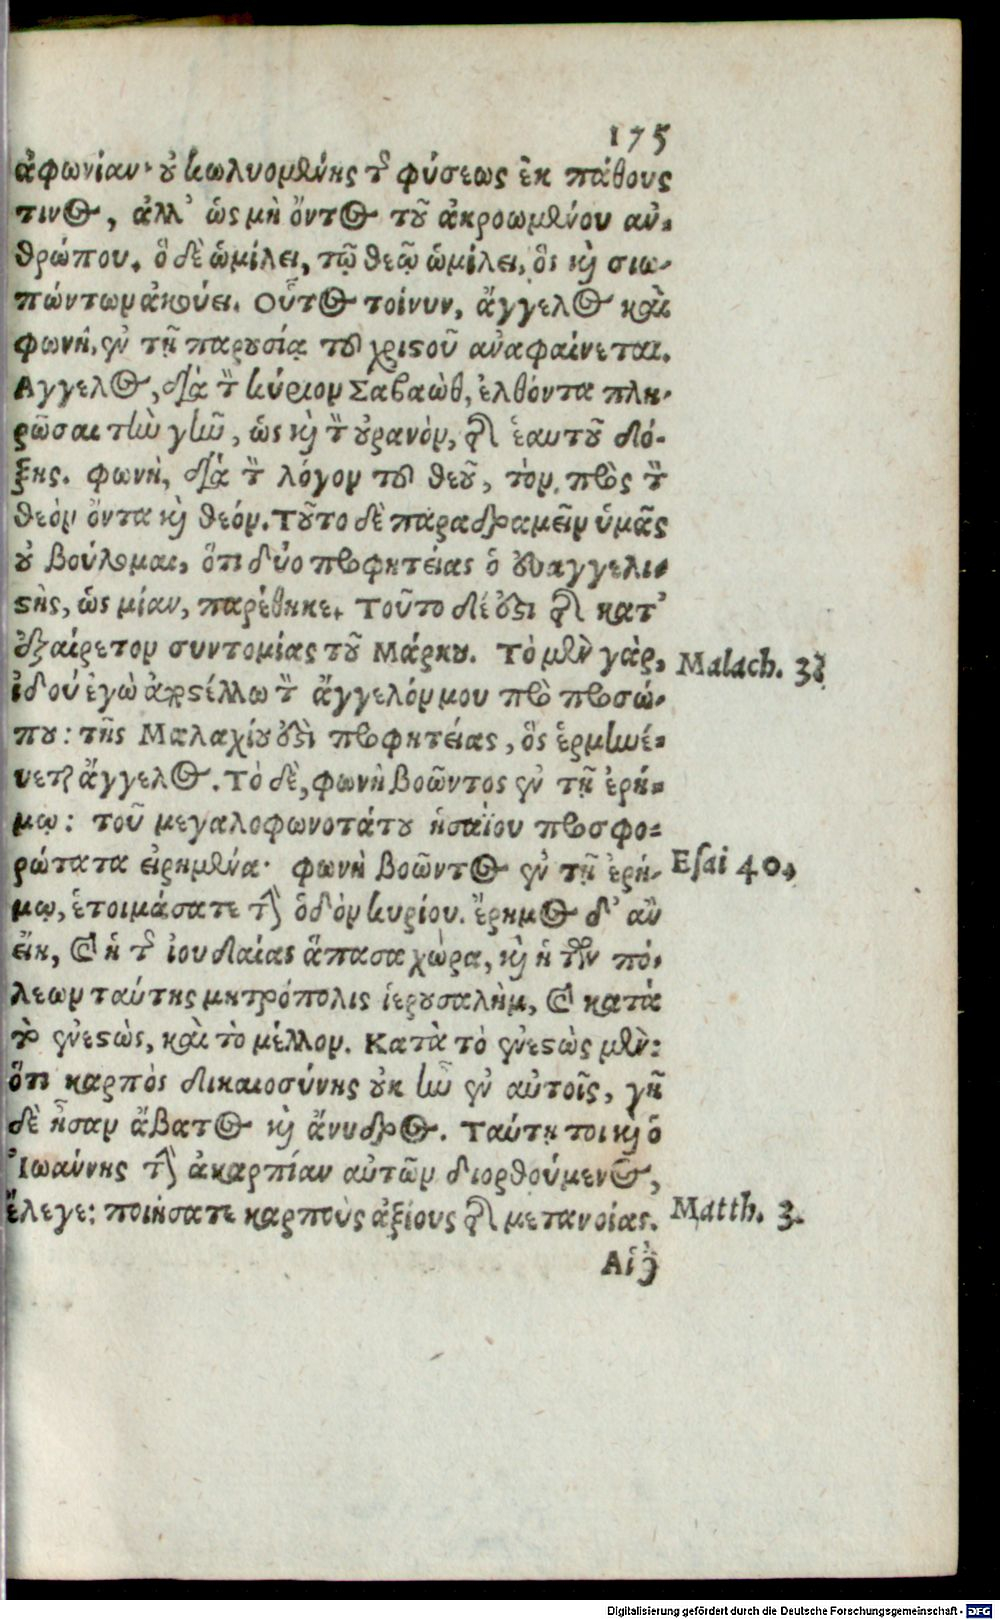 175
ἀφωνίαν· οὐ κωλυομένης τῆς φύσεως ἐκ πάθους
τινος, ἀλλ' ὡς μὴ ὄντος τοῦ ἀκροωμένου ἀν-
θρώπου. ὃ δὲ ὡμίλει, τῷ θεῷ ὡμίλει, ὃς καὶ σιω-
πώντων ἀκούει. Οὗτος τοίνυν, ἄγγελος καὶ
φωνὴ, ἐν τῇ παρουσίᾳ τοῦ χριστοῦ ἀναφαίνεται.
Αγγελος, διὰ τὸν κύριον Σαβαὼθ, ἐλθόντα πλη-
ρῶσαι τὴν γῆν, ὡς καὶ τὸν οὐρανὸν, τῆς ἑαυτοῦ δό-
ξης. φωνὴ, διὰ τὸν λόγον τοῦ θεοῦ, τὸν πρὸς τὸν
θεὸν ὄντα καὶ θεόν. Τοῦτο δὲ παραδραμεῖν ὑμᾶς
οὐ βούλομαι, ὅτι δύο προφητείας ὁ εὐαγγελι-
στὴς, ὡς μίαν, παρέθηκε. Τοῦτο δέ ἐστι τῆς κατ'
ἐξαίρετον συντομίας τοῦ Μάρκου. Τὸ μὲν γὰρ,
ἰδοὺ ἐγὼ ἀποστέλλω τὸν ἄγγελόν μου πρὸ προσώ-
που: τῆς Μαλαχίου ἐστὶ προφητείας, ὃς ἑρμηνέ-
νεται ἄγγελος. Τὸ δὲ, φωνὴ βοῶντος ἐν τῇ ἐρή-
μῳ: τοῦ μεγαλοφωνοτάτου ἡσαΐου προσφο-
ρώτατα εἰρημένα· φωνὴ βοῶντος ἐν τῇ ἐρή-
μῳ, ἑτοιμάσατε τὴν ὁδὸν κυρίου. ἔρημος δ' ἂν
εἴη, καὶ ἡ τῆς ἰουδαίας ἅπασα χώρα, καὶ ἡ τῶν πό-
λεων ταύτης μητρόπολις ἱερουσαλὴμ, καὶ κατὰ
τὸ ἐνεστὼς, καὶ τὸ μέλλον. Κατὰ τὸ ἐνεστὼς μὲν:
ὅτι καρπὸς δικαιοσύνης οὐκ ἦν ἐν αὐτοῖς, γῆ
δὲ ἦσαν ἄβατος καὶ ἄνυδρος. Ταύτῃ τοι καὶ ὁ
Ἰωάννης τὴν ἀκαρπίαν αὐτῶν διορθούμενος,
ἔλεγε: ποιήσατε καρποὺς ἀξίους τῆς μετανοίας.
Malach. 3.
Esai 40.
Matth. 3.
Digitalisierung gefördert durch die Deutsche Forschungsgemeinschaft - DFG